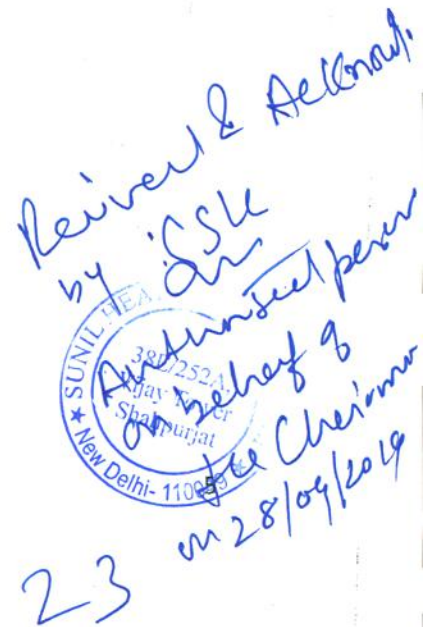 Reived & Acknowl.
by SSK
Authorised person
on behalf of
the Chairman
on 28/09/2019
SUNIL HEA
38E/252A,
Vijay Tower
Shahpurjat
★ New Delhi- 110
23